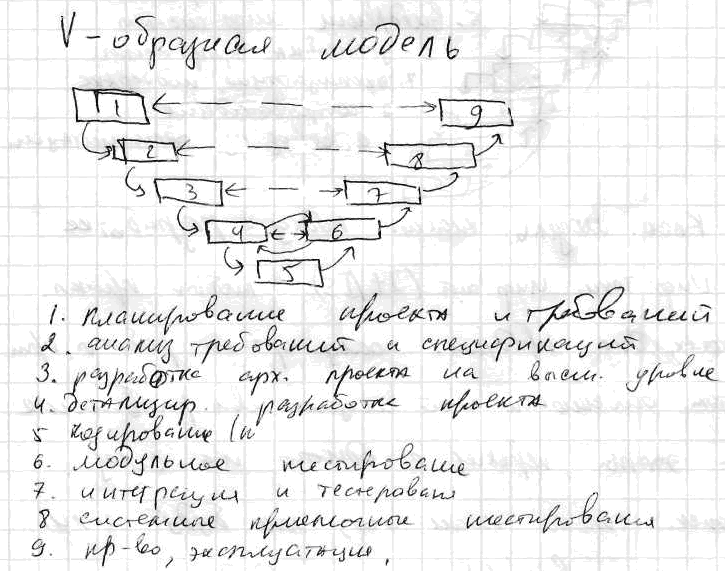 V-образная модель
1
9
2
8
3
7
4
6
5
1. планирование проекта и требований
2. анализ требований и спецификаций
3. разработка арх. проекта на высш. уровне
4. детализир. разработка проекта
5 кодирование (п
6. модульное тестирование
7. интеграция и тестирование
8 системные приемочные тестирования
9. пр-во, эксплуатация,